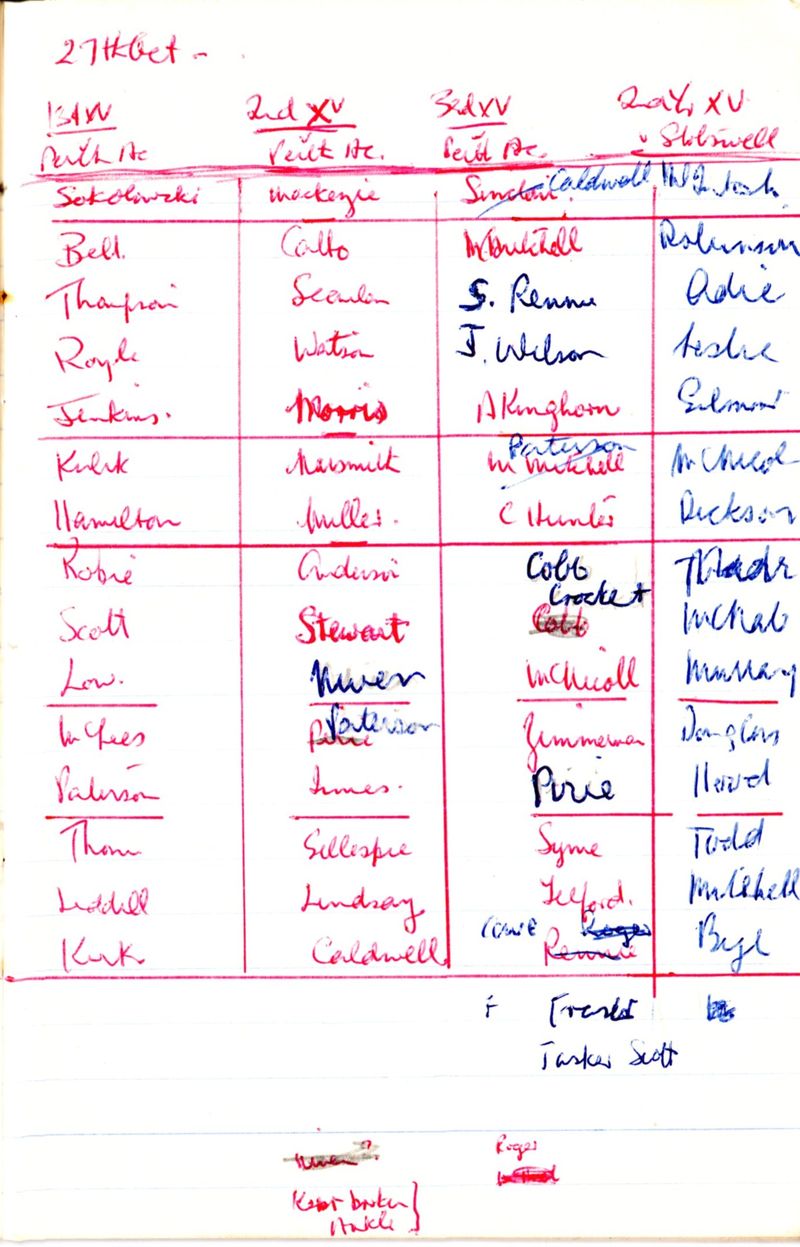 27th Oct -
1st XV 2nd XV 3rd XV 2nd Yr XV
Perth Ac Perth Ac. Perth Ac. v Stobswell
Sokolowski Mackenzie Sinclair Caldwell McIntosh
Bell Catto M Mitchell Robinson
Thompson Scanlon S. Rennie Adie
Royle Watson J. Wilson Leslie
Jenkins. Morris A Kinghorn
Paterson
Naismith M Mitchell McNicol
Hamilton Miller. C Hunter Dickson
Robie Anderson Cobb
Crocket
Scott Stewart Cobb McNab
Low. Niven McNicoll Murray
Paterson
McLees Pirie Zimmerman Douglas
Paterson Innes. Pirie Heward
Thom Gillespie Syme Todd
Liddell Lindsay Telford. Mitchell
Cowie Roger
Kirk Caldwell Rennie
Fraser
Tasker Scott
Niven? Roger
Kerr broken
Ankle